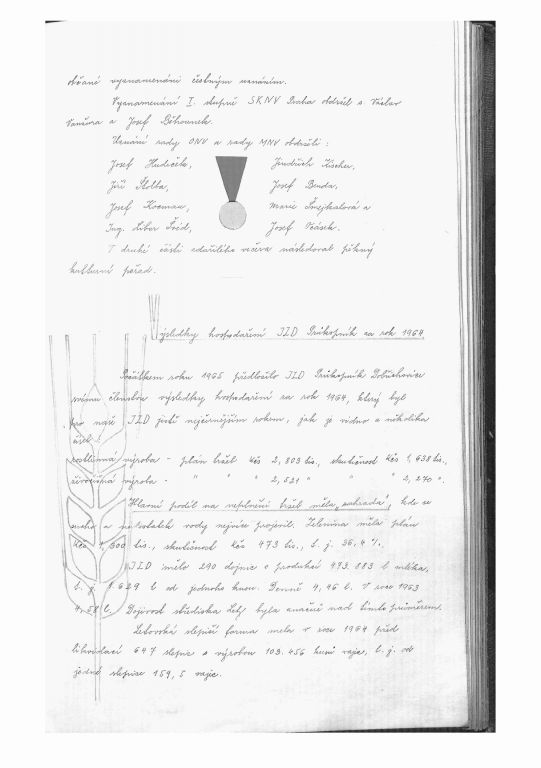 občané vyznamenáni čestným uznáním.
Vyznamenání I. stupně SKNV Praha obdržel s. Václav
a Josef Běhounek.
Uznání rady ONV a rady MNV obdrželi:
Josef Hudeček, Jindřich Fischer,
Jiří Štolba, Josef Benda,
Josef Kocman, Marie Šmejkalová a
Ing. Libor Šoid, Josef Vcásek.
V druhé části zdařilého večera následoval pěkný
kulturní pořad.
Výsledky hospodaření JZD Průkopník za rok 1964
Počátkem roku 1965 předložilo JZD Průkopník Dobšchovice
svému členstvu výsledky hospodaření za rok 1964, který byl
pro naše JZD jistě nejčernějším rokem, jak je vidno z několika
čísel:
rostlinná výroba - plán tržeb Kčs 2,803 tis., skutečnost Kčs 1,638 tis.,
živočišná výroba - " " " 2,521 " " " 2,270 ".
Hlavní podíl na neplnění tržeb měla "zahrada", kde se
sucho a nedostatek vody nejvíce projevil. Zelenina měla plán
Kčs 1,300 tis., skutečnost Kčs 473 tis., t. j. 36,4 %.
JZD mělo 290 dojnic o produkci 473.883 l mléka,
t. j. 1.629 l od jednoho kusu. Denně 4,46 l. V roce 1963
4,58 l. Dojivost střediska Lety byla značně nad tímto průměrem.
Letovská slepičí farma měla v roce 1964 před
likvidací 647 slepic s výrobou 103.456 kusů vajec, t. j. od
jedné slepice 159,5 vajec.